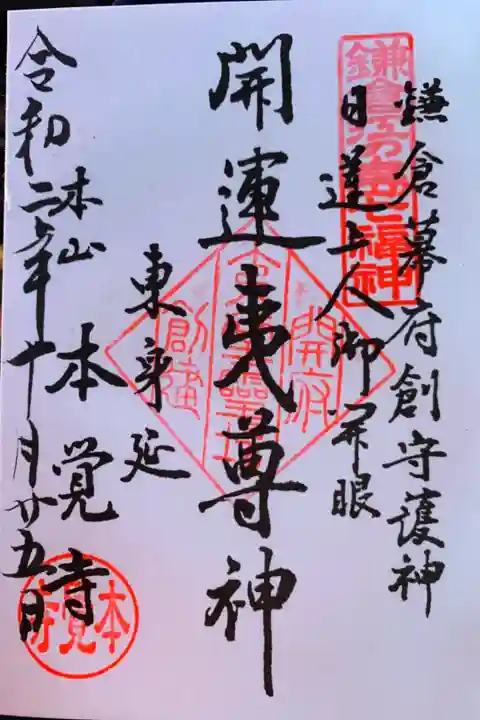 鎌倉幕府創守護神
日蓮上人御開眼
鎌倉江の島七福神
開運夷尊神
開府
霊場
創建
東身延
本山 本覚寺
令和二年十月廿五日
本覚寺